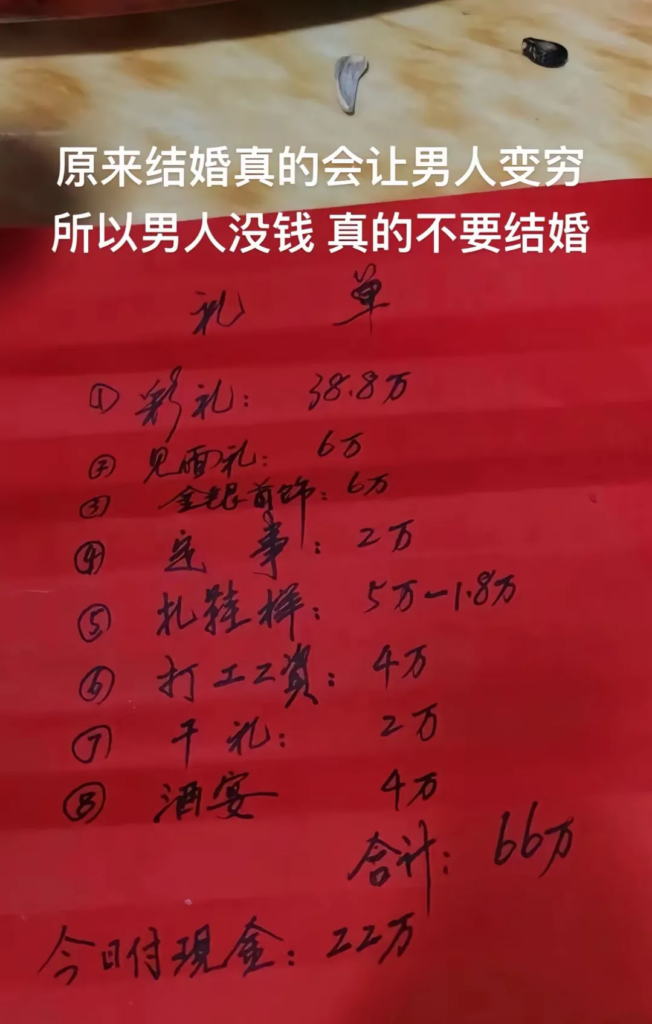 原来结婚真的会让男人变穷
所以男人没钱 真的不要结婚
礼 单
① 彩礼： 38.8万
② 见面礼： 6万
③ 金银首饰： 6万
④ 定 事： 2万
⑤ 扎鞋样： 5万-1.8万
⑥ 打工工資： 4万
⑦ 干礼： 2万
⑧ 酒宴 4万
合计： 66万
今日付现金： 22万